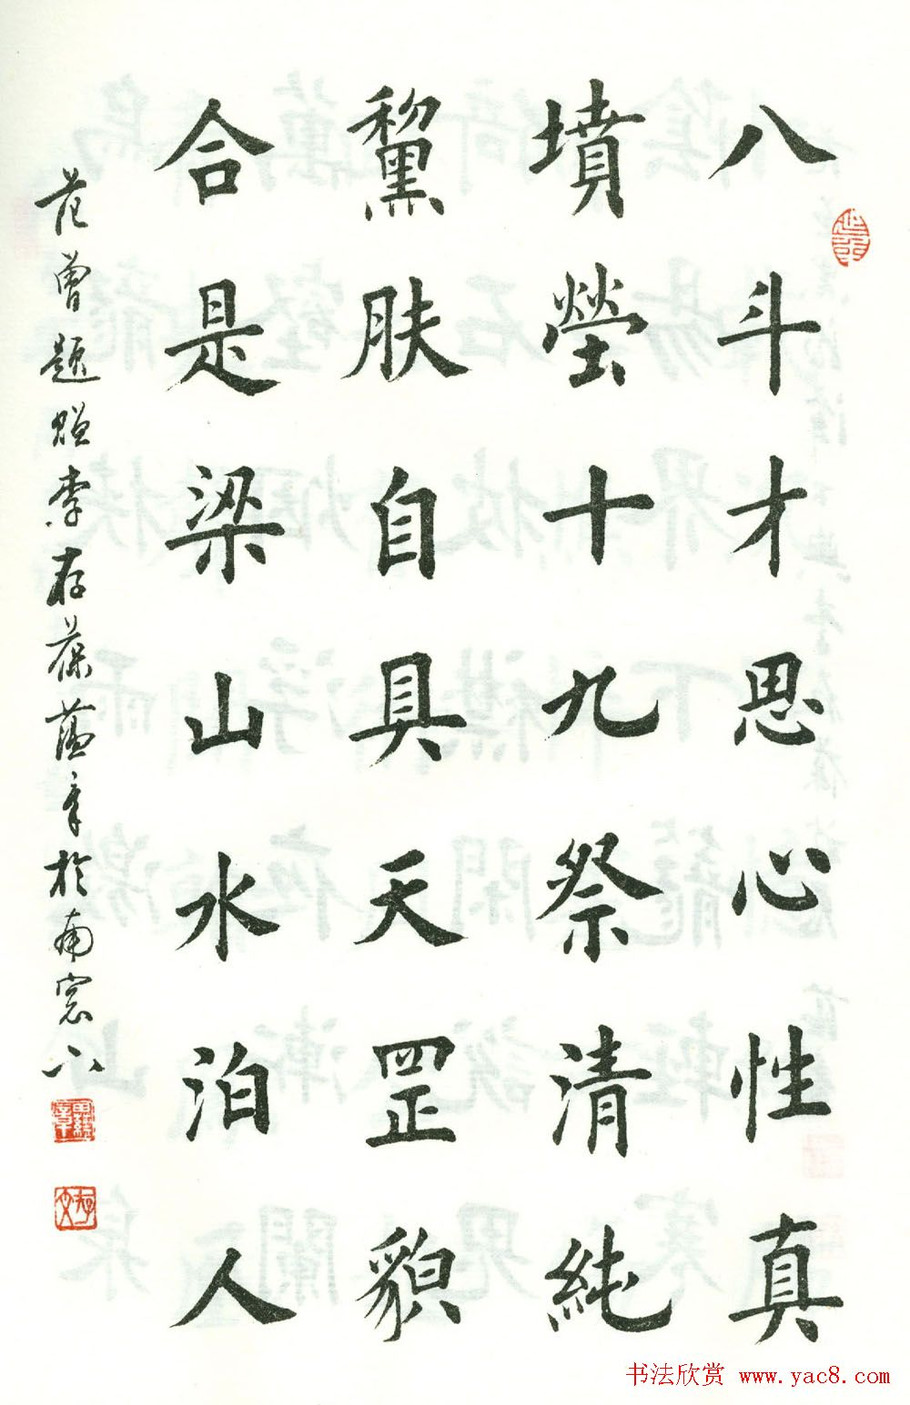 八斗才思心性真
墳塋十九祭清純
黧肤自具天罡貌
合是梁山水泊人
范曾題贈李存葆蘆章於南窓下
书法欣赏 www.yac8.com